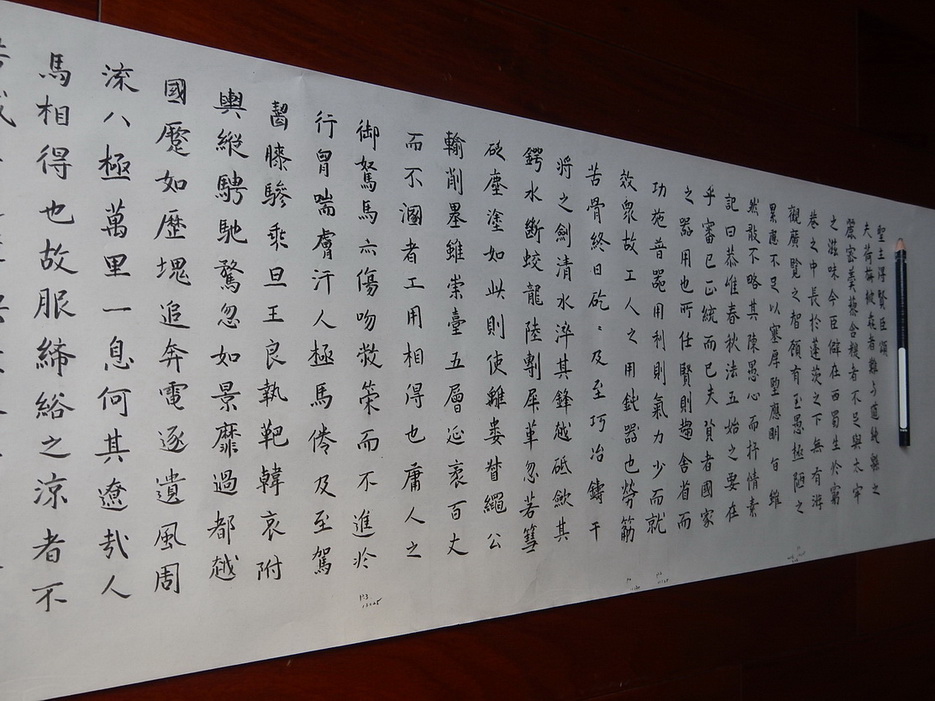 聖主得賢臣頌
夫荷旃被毳者難與道純綿之
麗密羹藜唅糗者不足與太牢
之滋味今臣僻在西蜀生於窮
巷之中長於蓬茨之下無有游
觀廣覽之智顧有至愚極陋之
累應不足以塞厚望應明旨雖
然敢不略其陳愚心而抒情素
記曰恭惟春秋法五始之要在
乎審己正統而已夫賢者國家
之器用也所任賢則趨舍省而
功施普器用利則氣力少而就
效衆故工人之用鈍器也勞筋
苦骨終日矻〻及至巧冶鑄干
將之劍清水淬其鋒越砥歛其
鍔水斷蛟龍陸剸犀革忽若篲
氾塵塗如此則使離婁督繩公
輸削墨雖崇臺五層延袤百丈
而不溷者工用相得也庸人之
御駑馬亦傷吻敝策而不進於
行胷喘膚汗人極馬倦及至駕
齧膝驂乘旦王良執靶韓哀附
輿縱騁馳騖忽如景靡過都越
國蹷如歷塊追奔電逐遺風周
流八極萬里一息何其遼哉人
馬相得也故服絺綌之涼者不